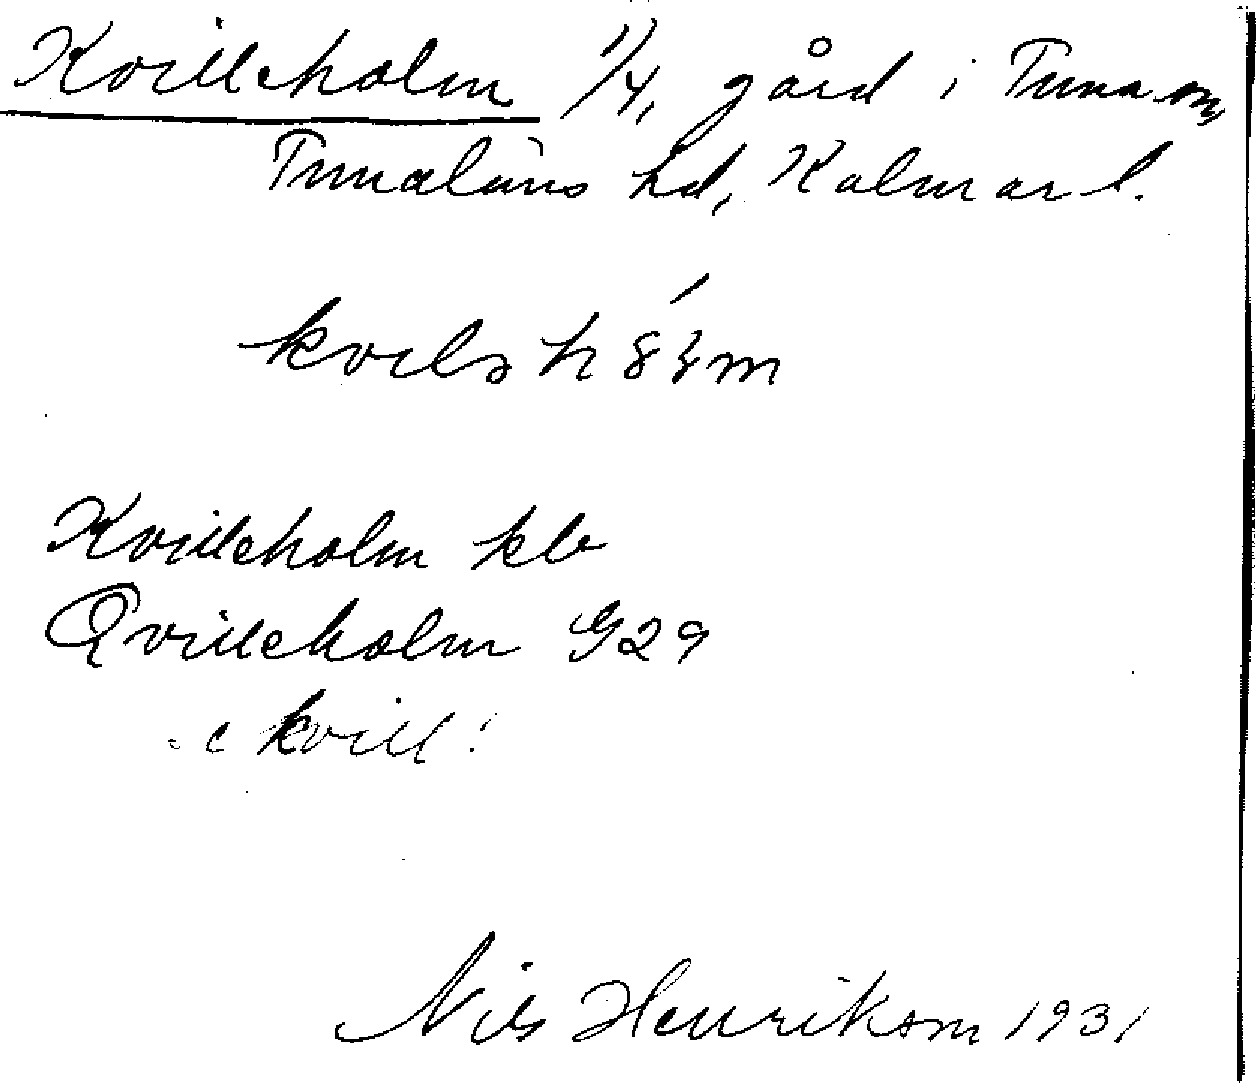 Kvilleholm 1/4, gård i Tuna sn,
Tunaläns hd, Kalmar l.
Kvilleholm klv
Qvilleholm G29
kvill!
Nils Henrikson 1931